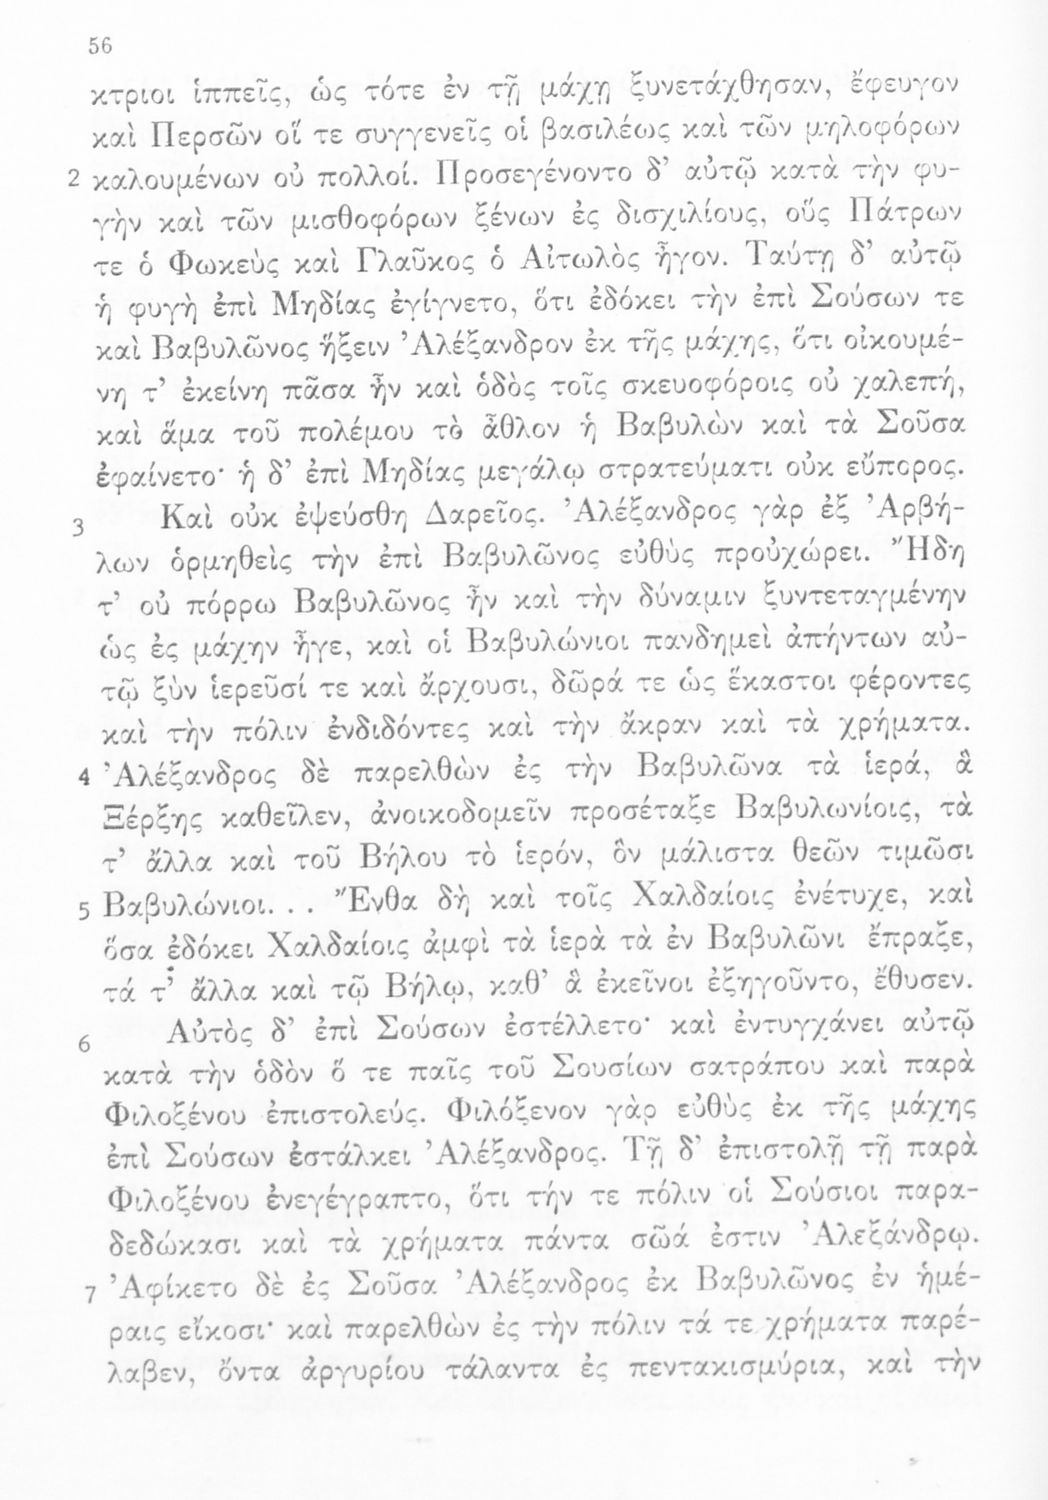 56
κτριοι ἱππεῖς, ὡς τότε ἐν τῇ μάχῃ ξυνετάχθησαν, ἔφευγον
καὶ Περσῶν οἵ τε συγγενεῖς οἱ βασιλέως καὶ τῶν μηλοφόρων
2 καλουμένων οὐ πολλοί. Προσεγένοντο δ’ αὐτῷ κατὰ τὴν φυ-
γὴν καὶ τῶν μισθοφόρων ξένων ἐς δισχιλίους, οὓς Πάτρων
τε ὁ Φωκεὺς καὶ Γλαῦκος ὁ Αἰτωλὸς ἦγον. Ταύτῃ δ’ αὐτῷ
ἡ φυγὴ ἐπὶ Μηδίας ἐγίγνετο, ὅτι ἐδόκει τὴν ἐπὶ Σούσων τε
καὶ Βαβυλῶνος ἥξειν Ἀλέξανδρον ἐκ τῆς μάχης, ὅτι οἰκουμέ-
νη τ’ ἐκείνη πᾶσα ἦν καὶ ὁδὸς τοῖς σκευοφόροις οὐ χαλεπή,
καὶ ἅμα τοῦ πολέμου τὸ ἆθλον ἡ Βαβυλὼν καὶ τὰ Σοῦσα
ἐφαίνετο· ἡ δ’ ἐπὶ Μηδίας μεγάλῳ στρατεύματι οὐκ εὔπορος.
3 Καὶ οὐκ ἐψεύσθη Δαρεῖος. Ἀλέξανδρος γὰρ ἐξ Ἀρβή-
λων ὁρμηθεὶς τὴν ἐπὶ Βαβυλῶνος εὐθὺς προὐχώρει. Ἤδη
τ’ οὐ πόρρω Βαβυλῶνος ἦν καὶ τὴν δύναμιν ξυντεταγμένην
ὡς ἐς μάχην ἦγε, καὶ οἱ Βαβυλώνιοι πανδημεὶ ἀπήντων αὐ-
τῷ ξὺν ἱερεῦσί τε καὶ ἄρχουσι, δῶρά τε ὡς ἕκαστοι φέροντες
καὶ τὴν πόλιν ἐνδιδόντες καὶ τὴν ἄκραν καὶ τὰ χρήματα.
4 Ἀλέξανδρος δὲ παρελθὼν ἐς τὴν Βαβυλῶνα τὰ ἱερά, ἃ
Ξέρξης καθεῖλεν, ἀνοικοδομεῖν προσέταξε Βαβυλωνίοις, τὰ
τ’ ἄλλα καὶ τοῦ Βήλου τὸ ἱερόν, ὃν μάλιστα θεῶν τιμῶσι
5 Βαβυλώνιοι. . . Ἔνθα δὴ καὶ τοῖς Χαλδαίοις ἐνέτυχε, καὶ
ὅσα ἐδόκει Χαλδαίοις ἀμφὶ τὰ ἱερὰ τὰ ἐν Βαβυλῶνι ἔπραξε,
τά τ’ ἄλλα καὶ τῷ Βήλῳ, καθ’ ἃ ἐκεῖνοι ἐξηγοῦντο, ἔθυσεν.
6 Αὐτὸς δ’ ἐπὶ Σούσων ἐστέλλετο· καὶ ἐντυγχάνει αὐτῷ
κατὰ τὴν ὁδὸν ὅ τε παῖς τοῦ Σουσίων σατράπου καὶ παρὰ
Φιλοξένου ἐπιστολεύς. Φιλόξενον γὰρ εὐθὺς ἐκ τῆς μάχης
ἐπὶ Σούσων ἐστάλκει Ἀλέξανδρος. Τῇ δ’ ἐπιστολῇ τῇ παρὰ
Φιλοξένου ἐνεγέγραπτο, ὅτι τήν τε πόλιν οἱ Σούσιοι παρα-
δεδώκασι καὶ τὰ χρήματα πάντα σῶά ἐστιν Ἀλεξάνδρῳ.
7 Ἀφίκετο δὲ ἐς Σοῦσα Ἀλέξανδρος ἐκ Βαβυλῶνος ἐν ἡμέ-
ραις εἴκοσι· καὶ παρελθὼν ἐς τὴν πόλιν τά τε χρήματα παρέ-
λαβεν, ὄντα ἀργυρίου τάλαντα ἐς πεντακισμύρια, καὶ τὴν